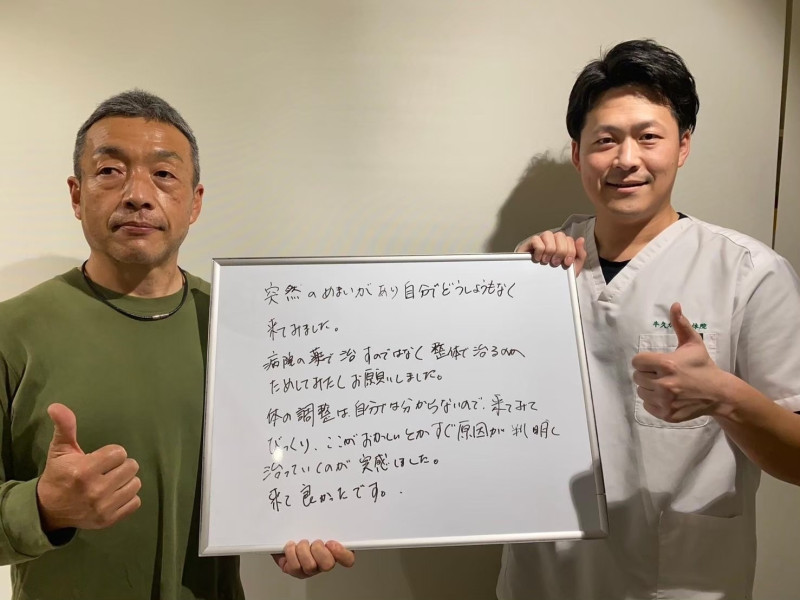 突然のめまいがあり自分でどうしようもなく
来てみました。
病院の薬で治すのではなく整体で治るのか
ためしてみたくお願いしました。
体の調整は自分では分からないので、来てみて
びっくり、ここがおかしいとかすぐ原因が判明し
治っていくのが実感しました。
来て良かったです。
牛久
体院